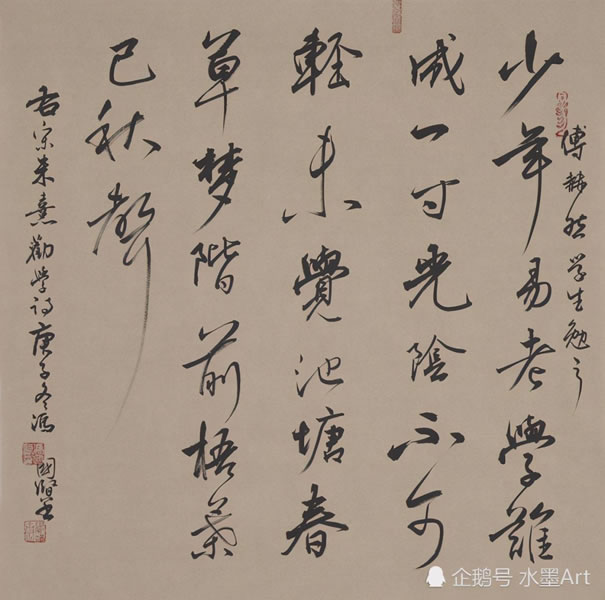 傅赫然学生勉之
少年易老學難
成一寸光陰不可
輕未覺池塘春
草梦階前梧葉
已秋聲
右宋朱熹勸学诗庚子冬馮
國
企鹅号 水墨Art